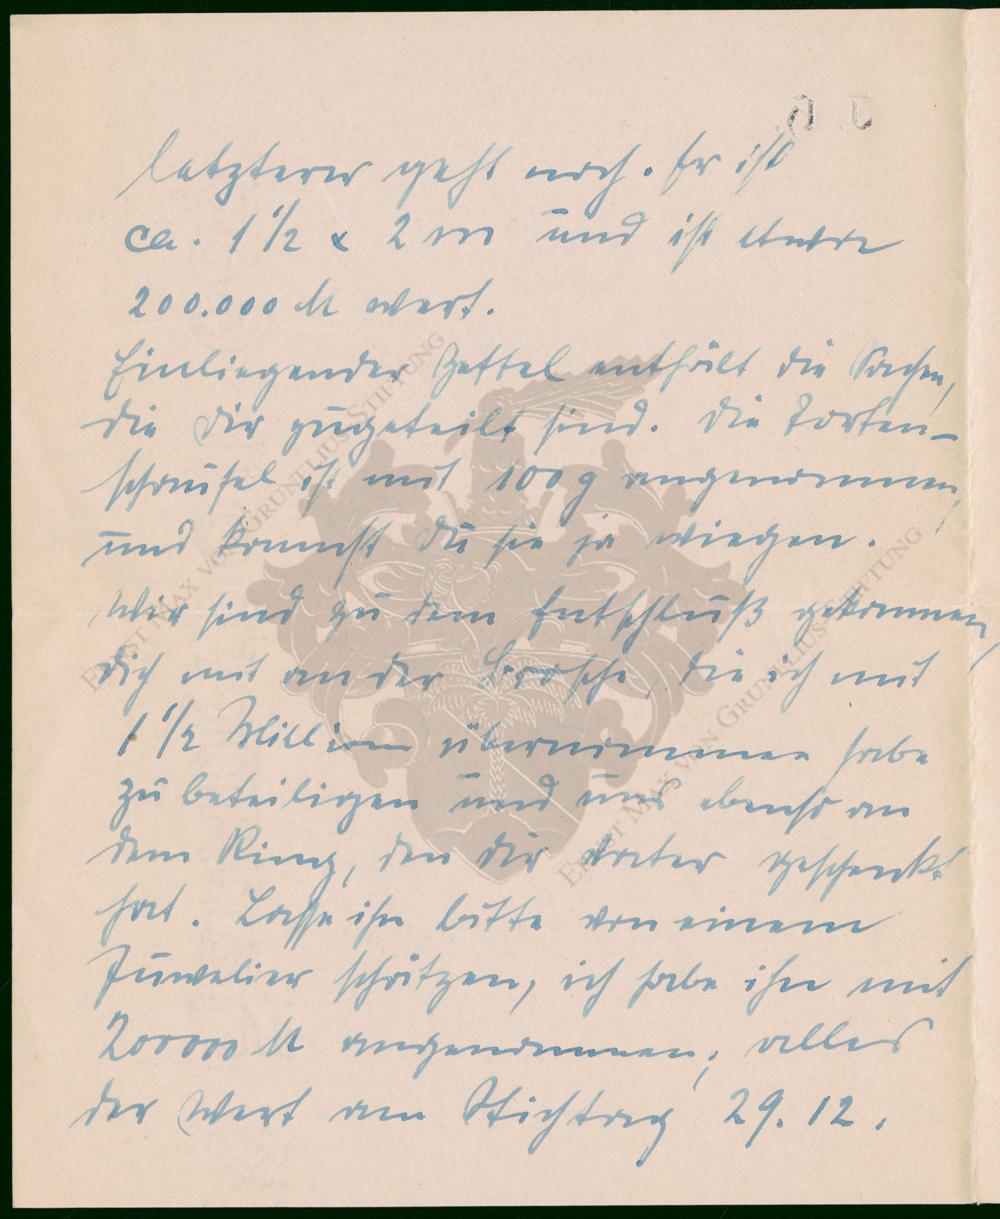 letzterer geht noch. Er ist
ca. 1 1/2 x 2 m und ist etwa
200.000 M wert.
Einliegender Zettel enthält die Sachen,
die dir zugeteilt sind. Die Torten-
schaufel ist mit 100 g angenommen,
und kannst Du sie ja wiegen.
Wir sind zu dem Entschluß gekommen,
dich mit an der Brosche, die ich mit
1 1/2 Million übernommen habe
zu beteiligen und uns ebenso an
dem Ring, den dir Vater geschenkt
hat. Lasse ihn bitte von einem
Juwelier schätzen, ich habe ihn mit
200000 M angenommen; alles
der Wert am Stichtag 29.12.
ERNST MAX VON GRUNELIUS-STIFTUNG
ERNST MAX VON GRUNELIUS-STIFTUNG